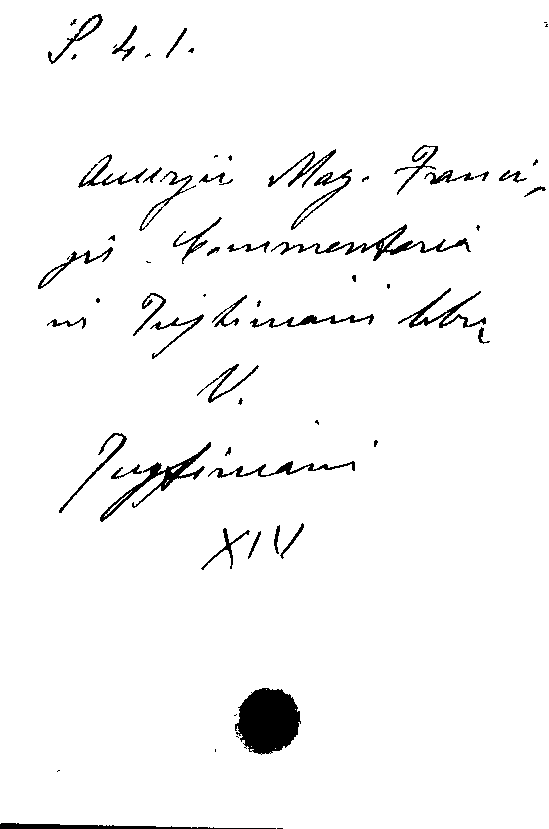 S. 4. 1.
Accursii Mag. Franci,
gis Commentaria
in Justiniani libr.
V.
Justiniani
XIV